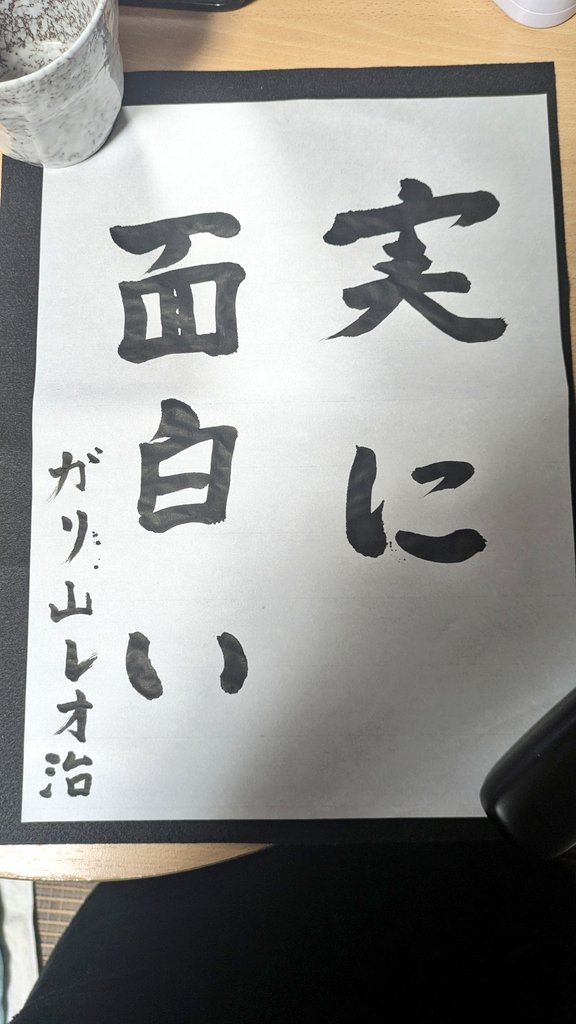 実に
面白い
ガリ山レオ治